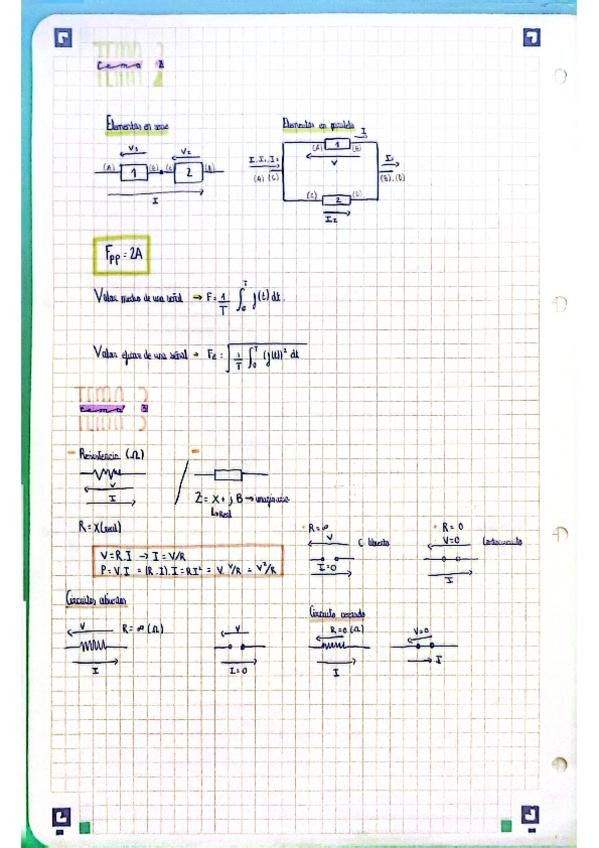 TEMA 2
tema 2
Elementos en serie
Elementos en paralelo
V1 V2
(A) 1 (B) (C) 2 (D)
I
I
(A) 1 (B)
V
I, I1, I2
(A) (C)
I2
(B), (D)
(C) 2 (D)
I2
Fpp = 2A
Valor medio de una señal → F = 1/T ∫0^T f(t) dt.
Valor eficaz de una señal → Fe = √(1/T ∫0^T (f(t))² dt)
TEMA 3
tema 3
Resistencia (Ω)
V
I
Z = X + jB → imaginario
↳ Real
R = X (real)
V = R.I → I = V/R
P = V.I = (R.I).I = RI² = V. V/R = V²/R
R = ∞
V
C. Abierto
I = 0
R = 0
V = 0
Cortocircuito
I
Circuitos abiertos
V R = ∞ (Ω)
I
V
I = 0
Circuito cerrado
R = 0 (Ω)
I
V = 0
I